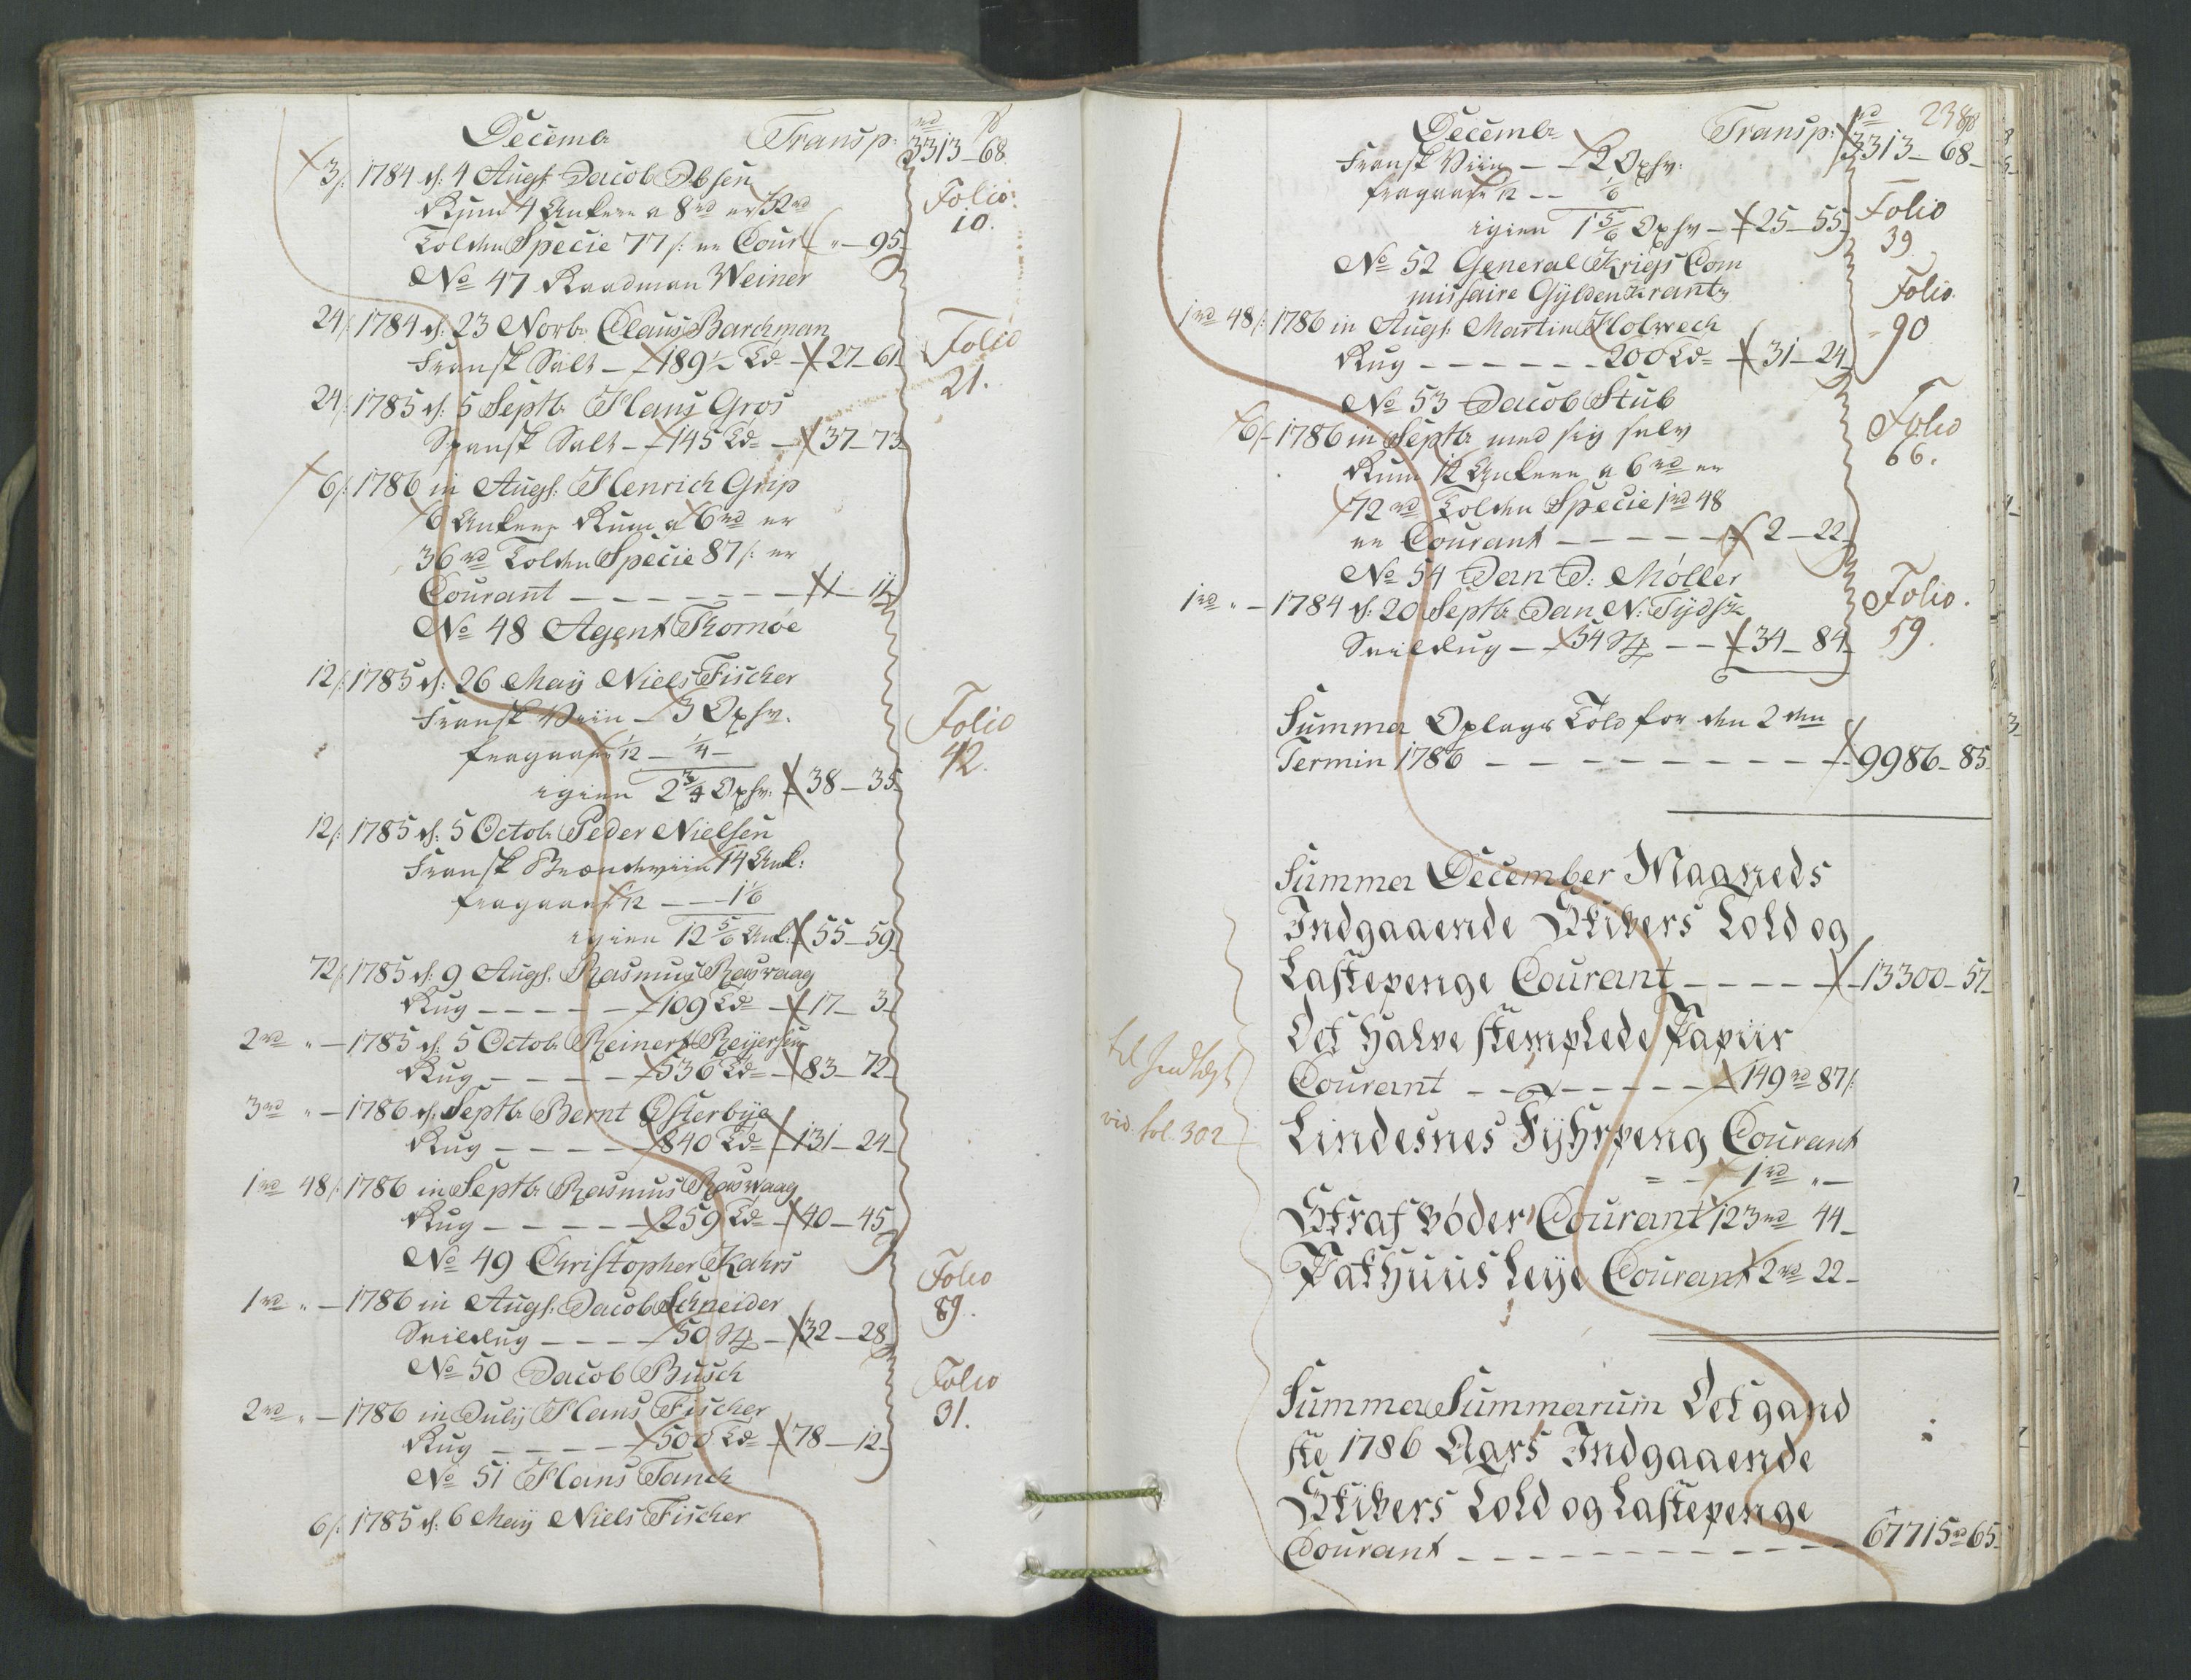 Decembr Transp: rd ß
3313 - 68
3/: 1784 d: 4 Augs Jacob Ibsen
Rum 4 Ankere a 8 rd er 32 rd
Tolden Specie 77/: er Cour " - 95
Folio:
10.
No 47 Raadman Weiner
24/: 1784 d: 23 Novbr Claus Barchman
Fransk Salt - 189 1/2 Td - 27 - 61
Folio
21.
24/: 1785 d: 5 Septbr Hans Gros
Spansk Salt - 145 Td - 37 - 73
6/: 1786 in Augs: Henrich Grip
6 Ankere Rum a 6 rd er
36 rd Tolden Specie 87/: er
Courant - - - - - - 1 - 11
No 48 Agent Thomøe
12/: 1785 d: 26 Maij Niels Fischer
Fransk Viin - 3 Oxhv.
fragaar 1/12 - 1/4 -
igien 2 3/4 Oxhv: 38 - 35
Folio
42.
12/: 1785 d: 5 Octobr Peder Nielsen
Fransk Brændeviin 14 Ank:
fragaar 1/12 - - 1 1/6
igien 12 5/6 Ank: 55 - 59
72/: 1785 d: 9 Augs. Rasmus Rasvaag
Rug - - - - - 109 Td - 17 - 3
2 rd " - 1785 d: 5 Octobr Reinert Reijersen
Rug - - - - - 536 Td - 83 - 72
3 rd " - 1786 d: Septbr Bernt Østerbye
Rug - - - - - 840 Td - 131 - 24
1 rd 48/: 1786 in Septbr Rasmus Rasvaag
Rug - - - - - 259 Td - 40 - 45
No 49 Christopher Kahrs
1 rd " - 1786 in Augs: Jacob Schneider
Seildug - - - - 50 St - 32 - 28
Folio
89.
No 50 Jacob Busch
2 rd " - 1786 in Julij Hans Fischer
Rug - - - - 500 Td - 78 - 12
Folio
31.
No 51 Hans Tanch
6/: 1785 d: 6 Maij Niels Fischer
238
Decembr Transp: rd ß
3313 - 68 -
Fransk Viin - - 2 Oxhv:
fragaar 1/12 - - 1/6
igien 1 5/6 Oxhv - 25 - 55
Folio
39
No 52 General Krigs Com
missaire Gyldenkrantz
1 rd 48/: 1786 in Augs: Martin Holwech
Rug - - - - - - 200 Td - 31 - 24
Folio
90
No 53 Jacob Stub
6/- 1786 in Septbr med sig selv
Rum 12 Ankere a 6 rd er
72 rd Tolden Specie 1 rd 48
er Courant - - - - - 2 - 22
Folio
66.
No 54 Jan D: Møller
1 rd " - 1784 d: 20 Septbr Jan N: Tydsk
Seildug - - 54 St - - 34 - 84
Folio.
59.
Summa Oplags Told for den 2 den
Termin 1786 - - - - - - - - - 9986 - 85
Summa December Maaneds
Indgaaende Skibers Told og
Lastepenge Courant - - - - - 13300 - 57
Det halve stemplede Papiir
Courant - - - - - - - 149 rd 87/:
Lindesnes Fyhrpeng Courant
= - 1 rd " -
Straf bøder Courant 123 rd 44 -
Pakhuus Leye Courant 2 rd 22 -
til Indtegt
vid. fol. 302
Summa Summarum Det gand
ske 1786 Aars Indgaaende
Skibers Told og Lastepenge
Courant - - - - - - - - - - - 67715 rd 65